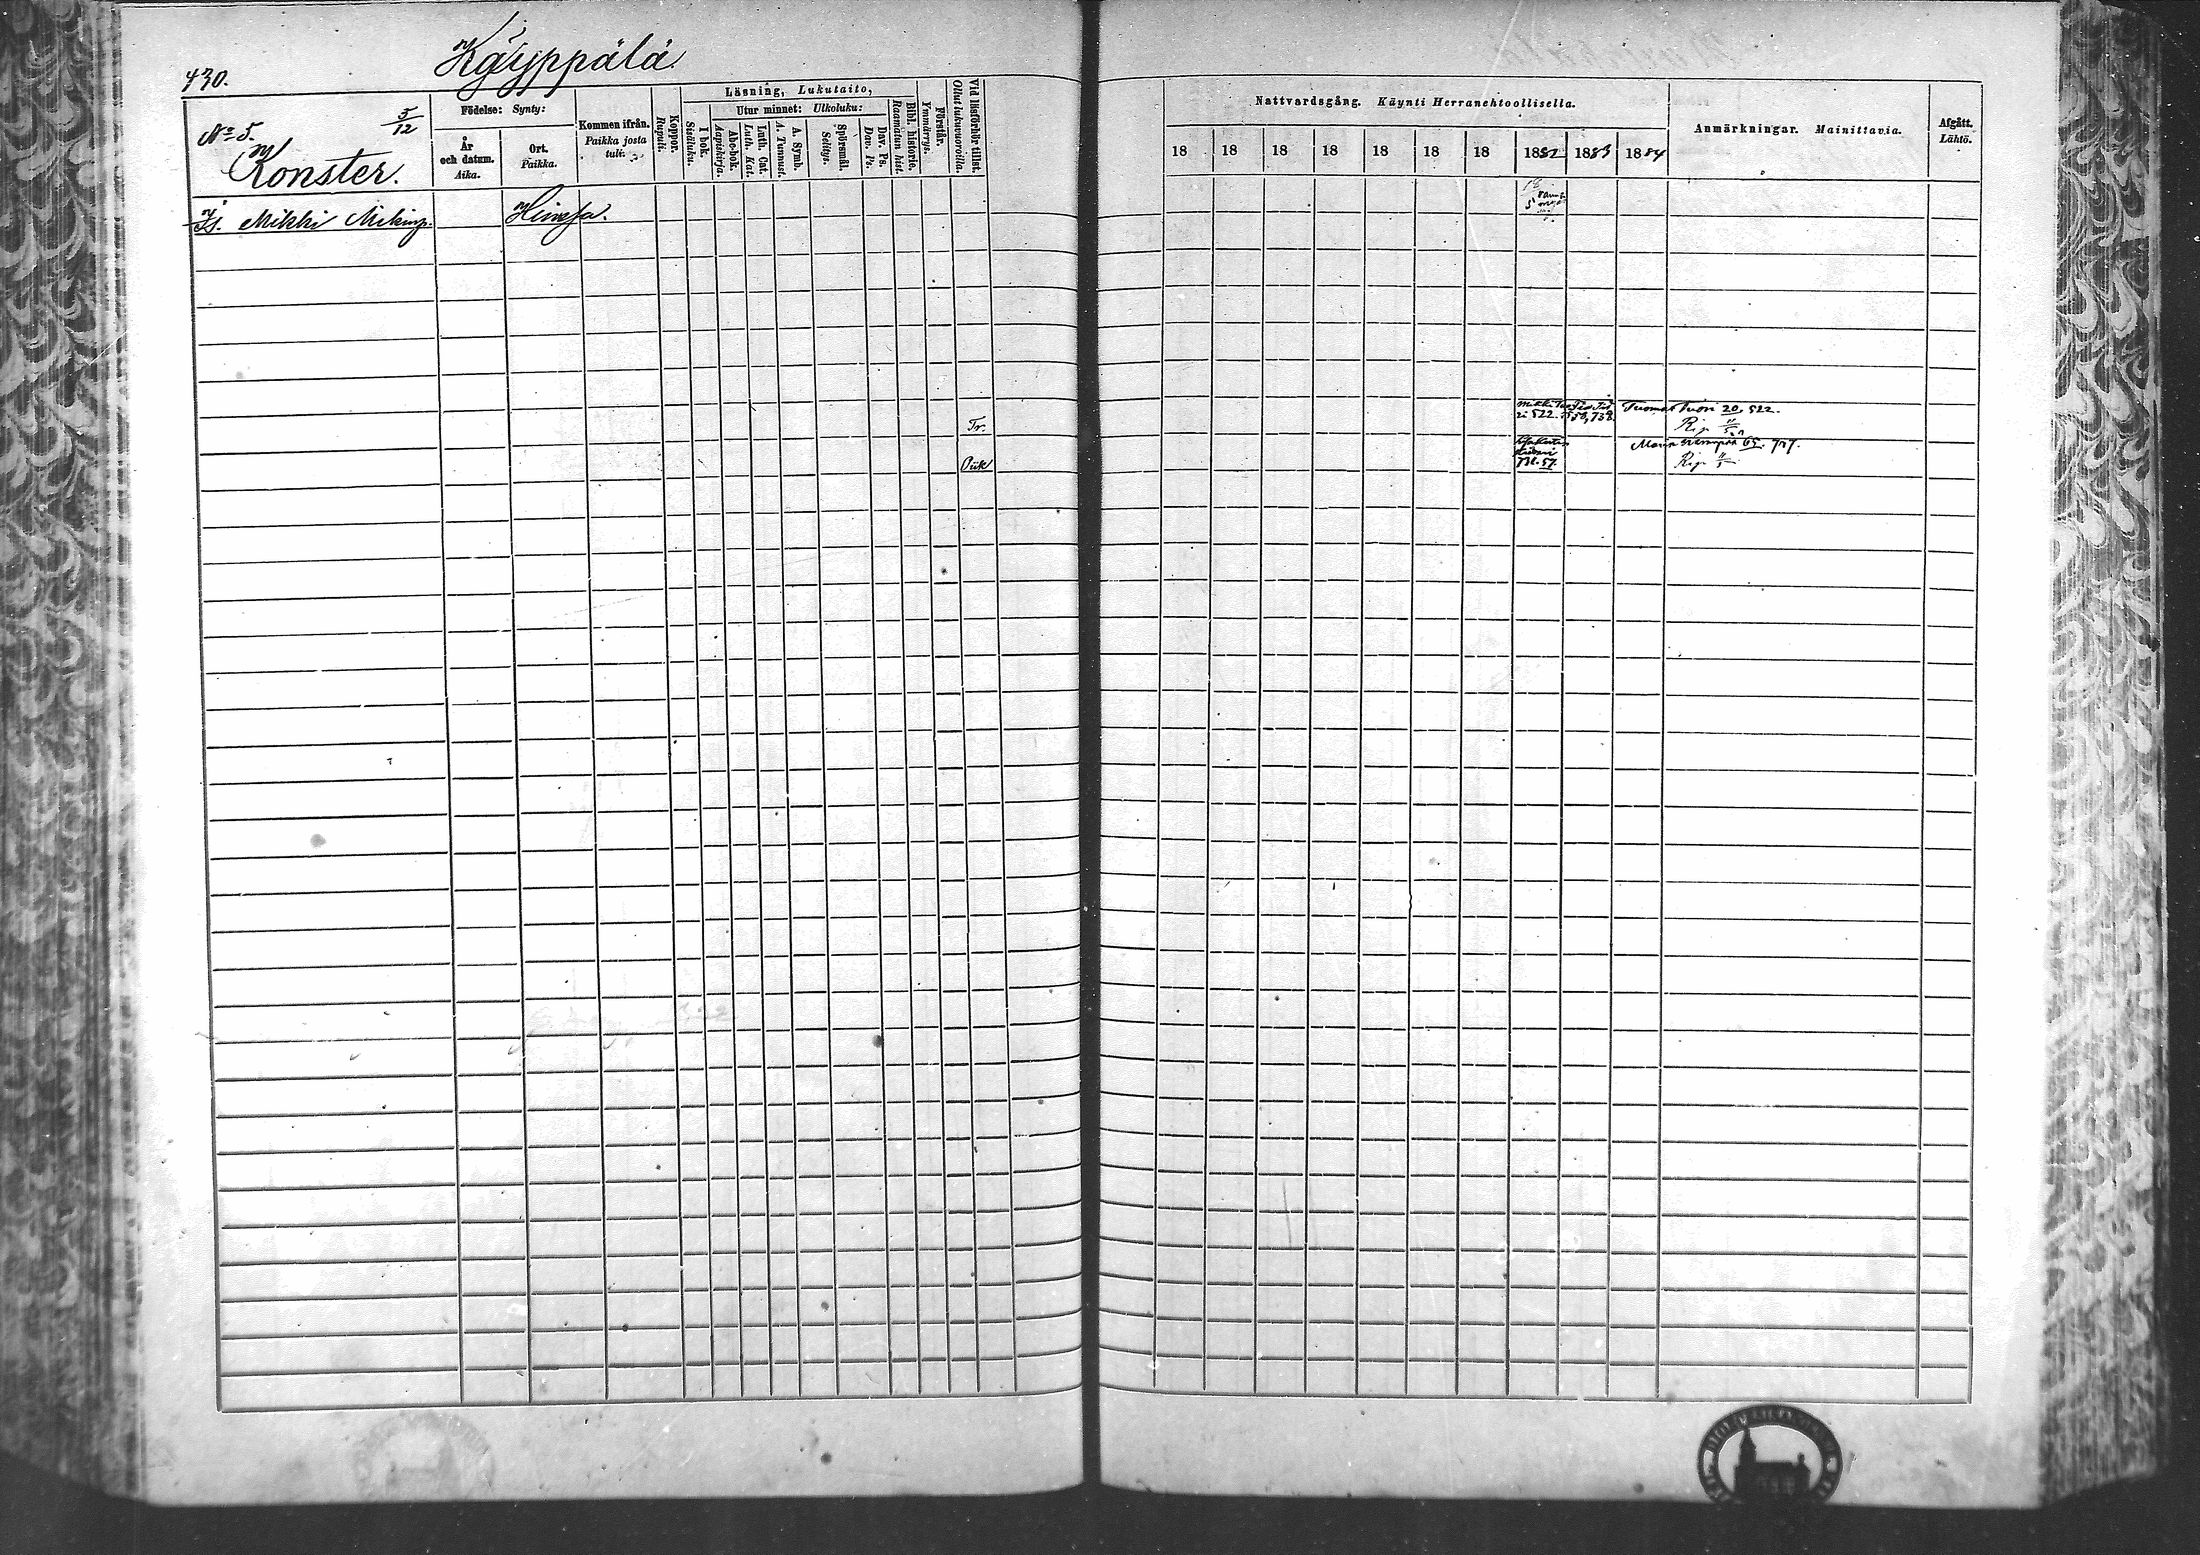 430.
Käyppälä
Nº 5.
5/12
Konster.
Födelse: Synty:
År och datum. Aika.
Ort. Paikka.
Kommen ifrån. Paikka josta tuli.
Koppor. Rupuli.
Läsning, Lukutaito,
I bok. Sisäluku.
Utur minnet: Ulkoluku:
Abc-bok. Aapiskirja.
Luth. Cat. Luth. Kat.
A. Symb. A. Tunnust.
Spörsmål. Selitys.
Dav. Ps. Dav. Ps.
Bibl. historie. Raamatun hist.
Förstår. Ymmärrys.
Vid läsförhör tillst. Ollut lukuvuorolla.
Nattvardsgång. Käynti Herranehtoollisella.
18 18 18 18 18 18 18 1882 1883 1884
Anmärkningar. Mainittavia.
Afgått. Lähtö.
Mikki
Tr.
522. 738. Tuomas Tuori 20. 522.
Rip. 11/5
Maria 65. 717.
Rip. 11/5